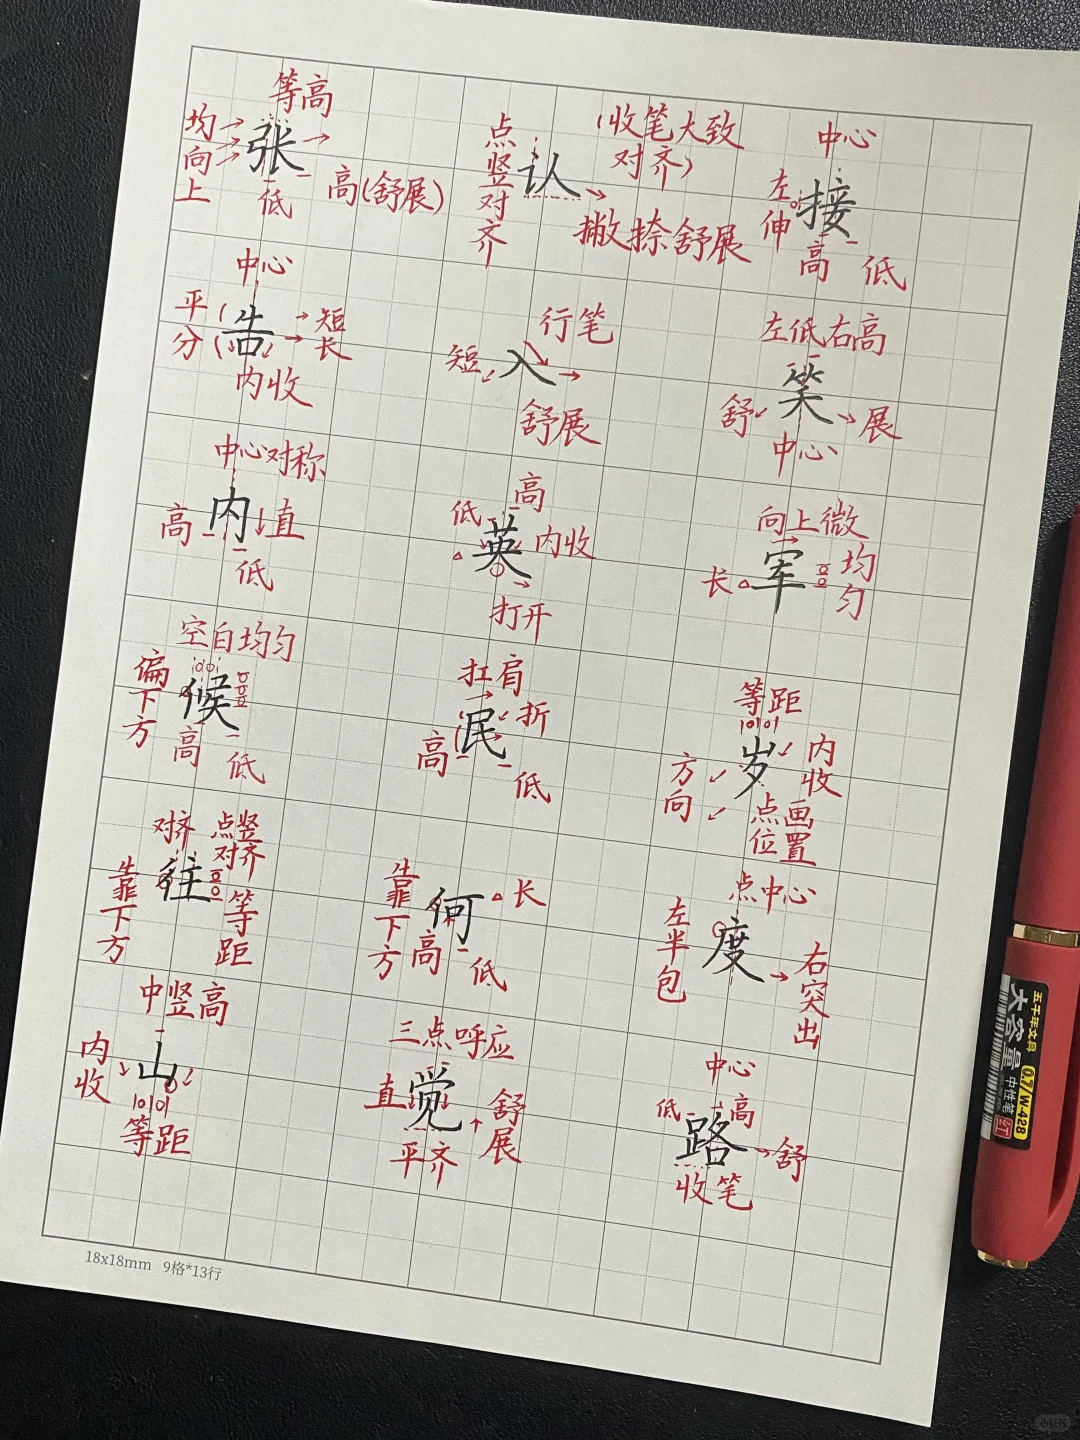 等高
均向上
张
低
高(舒展)
点竖对齐
认
(收笔大致
对齐)
撇捺舒展
中心
左伸
接
高
低
中心
平分
告
短
长
内收
行笔
短
入
舒展
左低右高
笑
舒
展
中心
中心对称
高
内
直
低
低
高
英
内收
打开
向上微
长
军
均匀
空白均匀
偏下方
候
高
低
扛肩
民
折
高
低
等距
岁
内收
方向
点画
位置
对齐
点竖
对齐
往
靠下方
等距
靠下方
何
长
高
低
点中心
左半包
度
右突出
中竖高
内收
山
等距
三点呼应
直
觉
舒展
平齐
中心
低
高
路
舒
收笔
18x18mm 9格*13行
五千年文具
大容量
0.7/W-428
中性笔
红
小红书